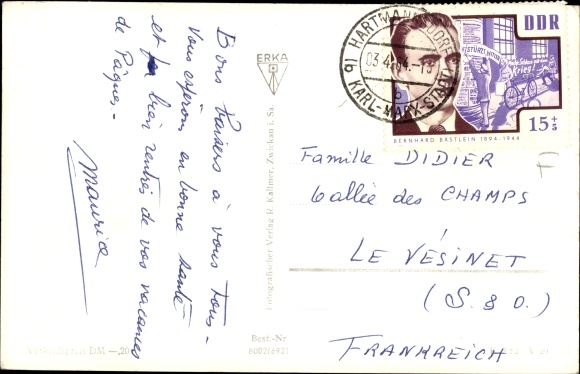 Bons baisers à vous tous -
Vous espérons en bonne santé
et bien rentrés de vos vacances
de Pâques. -
Maurice
ERKA
Fotografischer Verlag R. Kallmer, Zwickau i. Sa.
Best.-Nr
6002/692
DM —,20
HARTMANNSDORF
03.4.64.-1
b
KARL-MARX-STADT
DDR
15+5
BERNHARD BÄSTLEIN 1894-1944
Famille DIDIER
6 allée des CHAMPS
LE VÉSINET
(S. & O.)
FRANKREICH
F